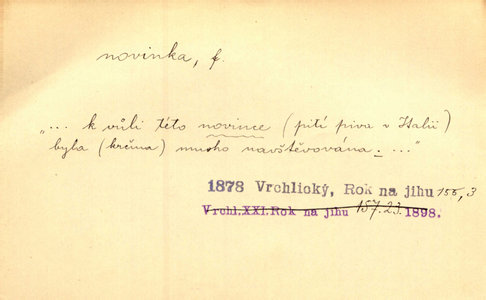 novinka, f.
„... k vůli této novince (pití piva v Italii)
byla (krčma) mnoho navštěvována. ..."
1878 Vrchlický, Rok na jihu 155,3
Vrchl.XXI.Rok na jihu 157.23.1898.